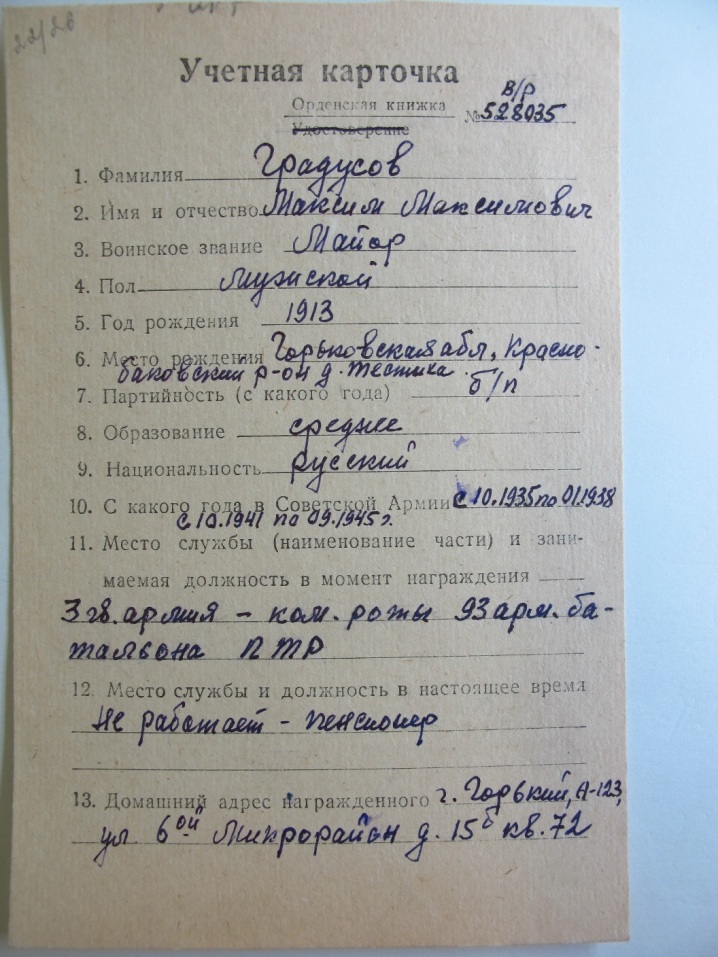 22/26
Учетная карточка
в/р
Орденская книжка № 528035
Удостоверение
1. Фамилия Градусов
2. Имя и отчество Максим Максимович
3. Воинское звание Майор
4. Пол мужской
5. Год рождения 1913
6. Место рождения Горьковская обл., Красно-
баковский р-он д. Жестика
7. Партийность (с какого года) б/п
8. Образование среднее
9. Национальность русский
10. С какого года в Советской Армии с 10.1935 по 01.1938
с 10.1941 по 09.1945 г.
11. Место службы (наименование части) и зани-
маемая должность в момент награждения
3 гв. армия - ком. роты 93 арм. ба-
тальона ПТР
12. Место службы и должность в настоящее время
Не работает - пенсионер
13. Домашний адрес награжденного г. Горький, А-123,
ул. 6ой Микрорайон д. 15б кв. 72